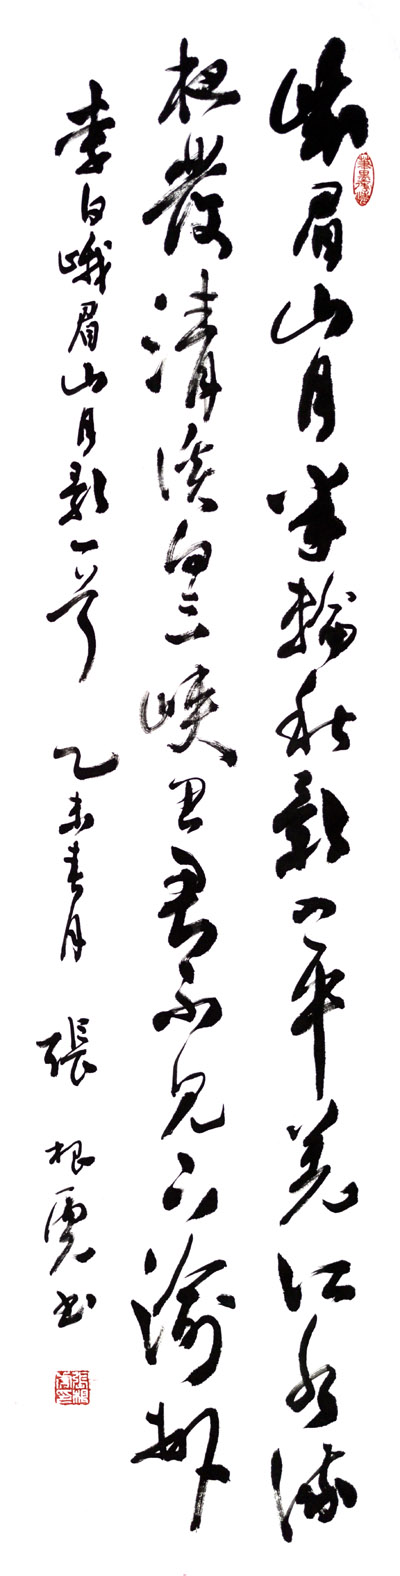 峨眉山月半輪秋影入平羌江水流
夜發清溪向三峽思君不見下渝州
李白峨眉山月歌一首 乙未春月 張根虎书